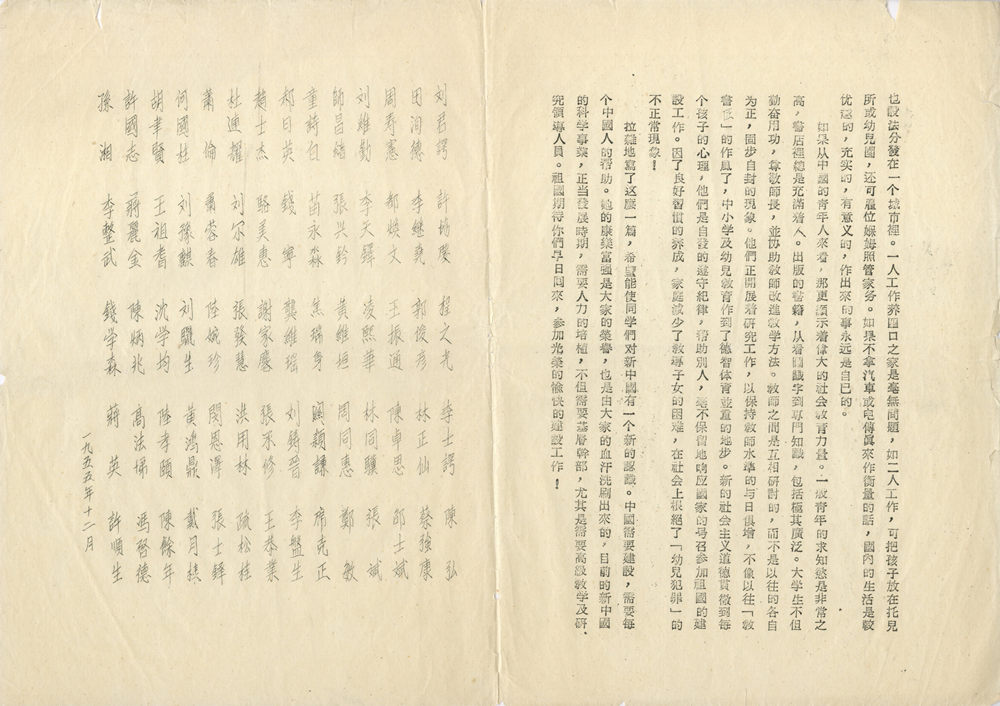 也設法分發在一个城市裡。一人工作养四口之家是毫無問題，如二人工作，可把孩子放在托兒
所或幼兒園，还可雇位娘姆照管家务。如果不拿汽車或电傳眞來作衡量的話，國內的生活是較
优越的，充实的，有意义的，作出來的事永远是自己的。
如果从中國的青年人來看，那更顯示着偉大的社会教育力量。一般青年的求知慾是非常之
高，書店裡總是充滿着人。出版的書籍，从看圖識字到專門知識，包括極其廣泛。大学生不但
勤奋用功，尊敬師長，並协助教師改進教学方法。教師之間是互相研討的，而不是以往的各自
为正，固步自封的現象。他們正開展着研究工作，以保持教師水準的与日俱增，不像以往「教
書匠」的作風了，中小学及幼兒教育作到了德智体育並重的地步。新的社会主义道德貫徹到每
个孩子的心理，他們是自發的遵守紀律，帮助別人，毫不保留地响应國家的号召参加祖國的建
設工作。因了良好習慣的养成，家庭減少了教導子女的困难，在社会上根絕了「幼兒犯罪」的
不正常現象！
拉雜地寫了这麽一篇，希望能使同学們对新中國有一个新的認識。中國需要建設，需要每
个中國人的帮助。她的康樂富强是大家的榮譽，也是由大家的血汗洗刷出來的，目前的新中國
的科学事業，正当發展時期，需要人力的培植，不但需要基層幹部，尤其是需要高級教学及研
究領導人員。祖國期待你們早日回來，参加光榮的愉快的建設工作！
刘君諤 許協慶 程之光 李士諤 陳弘
田洵德 李継堯 郭俊彦 林正仙 蔡強康
周寿憲 都焕文 王振通 陳卓思 邵士斌
刘維勤 李天鐸 凌熙華 林同驥 張斌
師昌緒 張兴鈐 黄維垣 周同惠 鄭敏
童詩白 苗永淼 焦瑞身 闵頴謙 席克正
郑日英 錢寧 龔維瑶 刘鋳晋 李盤生
趙士杰 駱美惠 謝家麐 張承修 王恭業
杜連耀 刘尔雄 張發慧 洪用林 疏松桂
蕭倫 肅蓉春 陸婉珍 閔恩澤 張士鐸
何國柱 刘豫麒 刘騣生 黄鴻鼎 戴月棣
胡聿賢 王祖耆 沈学均 陸孝頤 陳餘年
許國志 蔣麗金 陳炳兆 高法悌 馮啓德
孫湘 李整武 錢学森 蔣英 許順生
一九五五年十二月